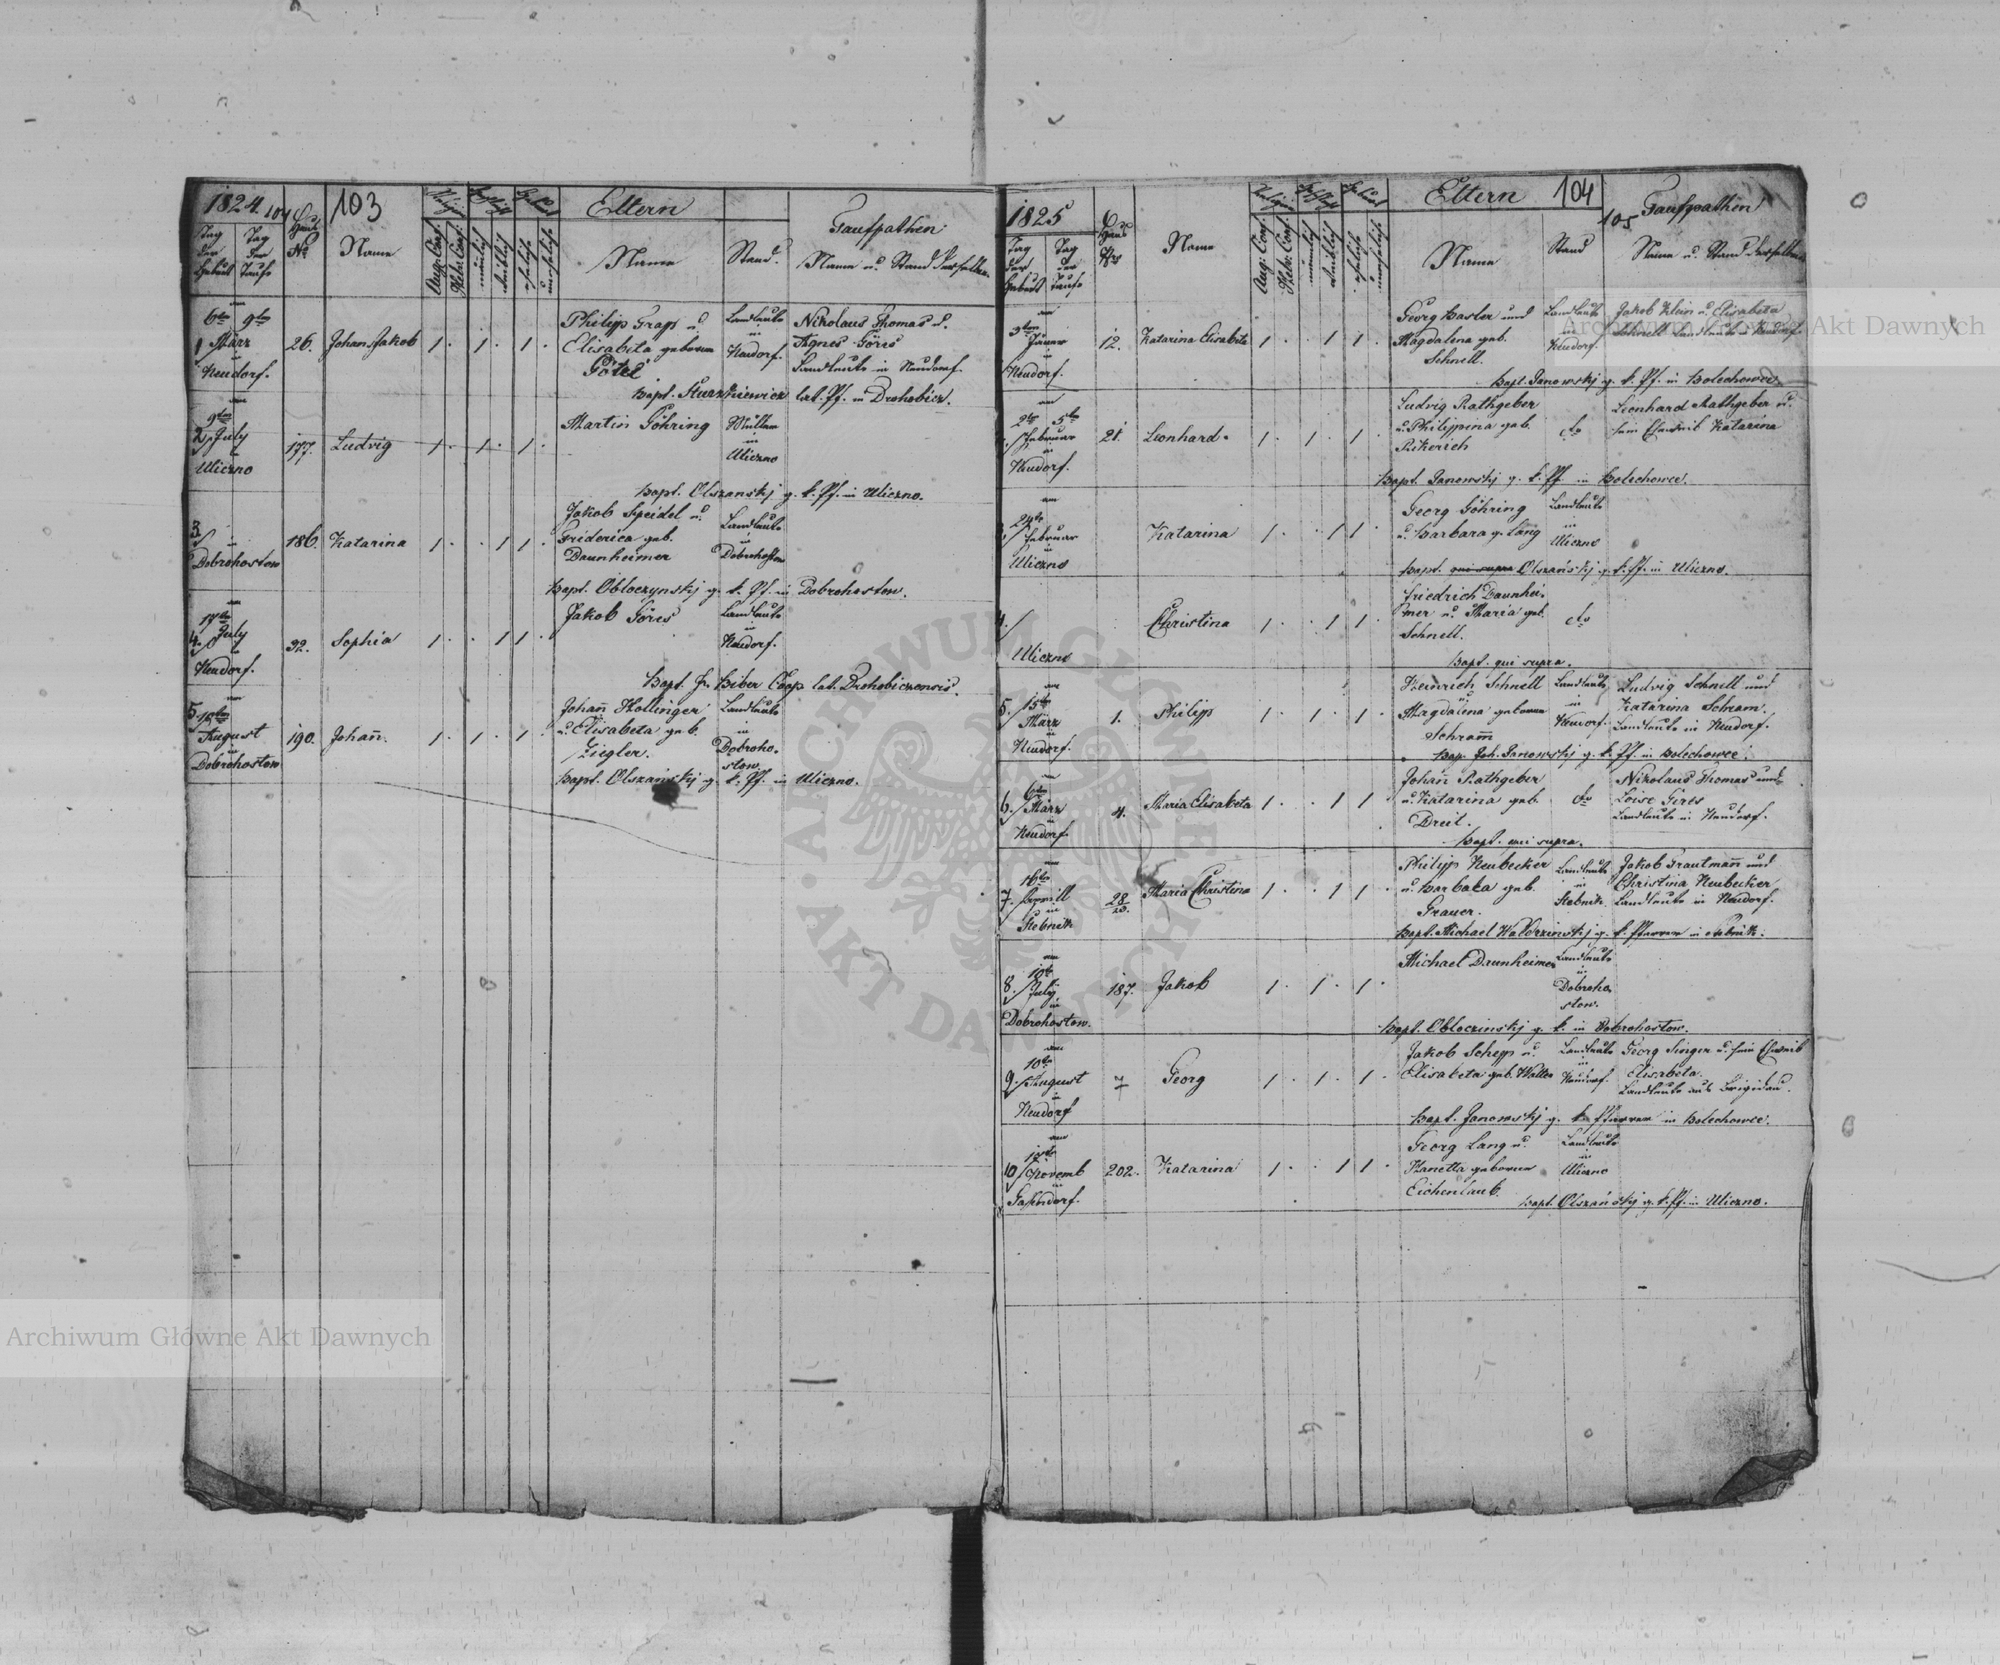 1824. 104 103
Haus
No
Tag der Geburt
Tag der Taufe
Name
Religion
Aug. Conf.
Helv. Conf.
männlich
weiblich
ehelich
unehelich
Eltern
Name
Stand.
Taufpathen
Name u. Stand derselben
1. am 6ten 9ten März in Neudorf.
26.
Johan Jakob
1 1 1
Philipp Graff u. Elisabeta geboren Götel
Landleute in Neudorf.
Nikolaus Thomas u. Agnes Göres Landleute in Neudorf.
bapt. lat. Pf. in Drohobicz.
2. am 9ten July in Uliczno
177.
Ludvig
1 1 1
Martin Göhring
in Uliczno
bapt. Olszanskj g. k. Pf. in Uliczno.
3. in Dobrohostow
186.
Katarina
1 1 1
Jakob Speidel u. Friderica geb. Daunheimer
Landleute in Dobrohostow
bapt. Obloczynskj g. k. Pf. in Dobrohostow.
4. am 17ten July in Neudorf.
32.
Sophia
1 1 1
Jakob Göres
Landleute in Neudorf.
bapt. Fr. Biber Coop. lat. Drohobiczensis.
5. August in Dobrohostow
190.
Johañ.
1 1 1
Johañ Hollinger u. Elisabeta geb. Ziegler.
Landleute in Dobrohostow.
bapt. Olszanskj g. k. Pf. in Uliczno.
1825
Haus
Nro
Tag der Geburt
Tag der Taufe
Name
Religion
Aug. Conf.
Helv. Conf.
männlich
weiblich
ehelich
unehelich
Eltern 104
105
Name
Stand
Taufpathen
Name u. Stand derselben
am 9ten Jäner in Neudorf.
12.
Katarina Elisabeta
1 1 1
Georg Basler und Magdalena geb. Schnell.
Landleute Neudorf.
Jakob Klein u. Elisabeta Schnell Landleute in Neudorf.
bapt. Janowskj g. k. Pf. in Bolechowce
am 2ten 5ten Februar in Neudorf.
21.
Leonhard.
1 1 1
Ludvig Rathgeber u. Philippina geb. Rikerich
do
Leonhard Rathgeber u. sein Eheweib Katarina
bapt. Janowskj g. k. Pf. in Bolechowce.
am 24te Februar in Uliczno
Katarina
1 1 1
Georg Göhring u. Barbara g. Lang
Landleute in Uliczno
bapt. qui supra Olszańskj g. k. Pf. in Uliczno.
4. Uliczno
Christina
1 1 1
Friedrich Daunheimer u. Maria geb. Schnell.
do
bapt. qui supra.
5. am 15ten März in Neudorf.
1.
Philipp
1 1 1
Heinrich Schnell u. Magdalena geboren Schram̃
Landleute in Neudorf.
Ludvig Schnell und Katarina Schram. Landleute in Neudorf.
bap. Joh. Janowskj g. k. Pf. in Bolechowce.
6. am 6te März in Neudorf.
4.
Maria Elisabeta
1 1 1
Johañ Rathgeber u. Katarina geb. Dreil.
do
Nikolaus Thomas und Loise Göres Landleute in Neudorf.
bapt. qui supra.
7. am 16ten Aprill in Stebnik
28
Maria Christina
1 1 1
Philipp Neubecker u. Barbara geb. Grauer.
Landleute in Stebnik
Jakob Trautmañ und Christina Neubecker Landleute in Neudorf.
bapt. Michael g. k. Pfarrer in Stebnik.
8. am 10te July in Dobrohostow.
187.
Jakob
1 1 1
Michael Daunheimer
Landleute in Dobrohostow.
bapt. Obloczinskj g. k. in Dobrohostow.
9. am 10te August in Neudorf
7
Georg
1 1 1
Jakob Schepp u. Elisabeta geb. Walter
Landleute in Neudorf.
Georg Singer u. sein Eheweib Elisabeta. Landleute aus Brigidau.
bapt. Janowskj g. k. Pfarrer in Bolechowce.
10. am Novemb in Gassendorf.
202.
Katarina
1 1 1
Georg Lang u. Hanetta geboren Eichenlaub.
Landleute in Uliczno
bapt. Olszańskj g. k. Pf. in Uliczno.
Archiwum Główne Akt Dawnych
Archiwum Główne Akt Dawnych
ARCHIWUM GŁÓWNE · AKT DAWNYCH ·